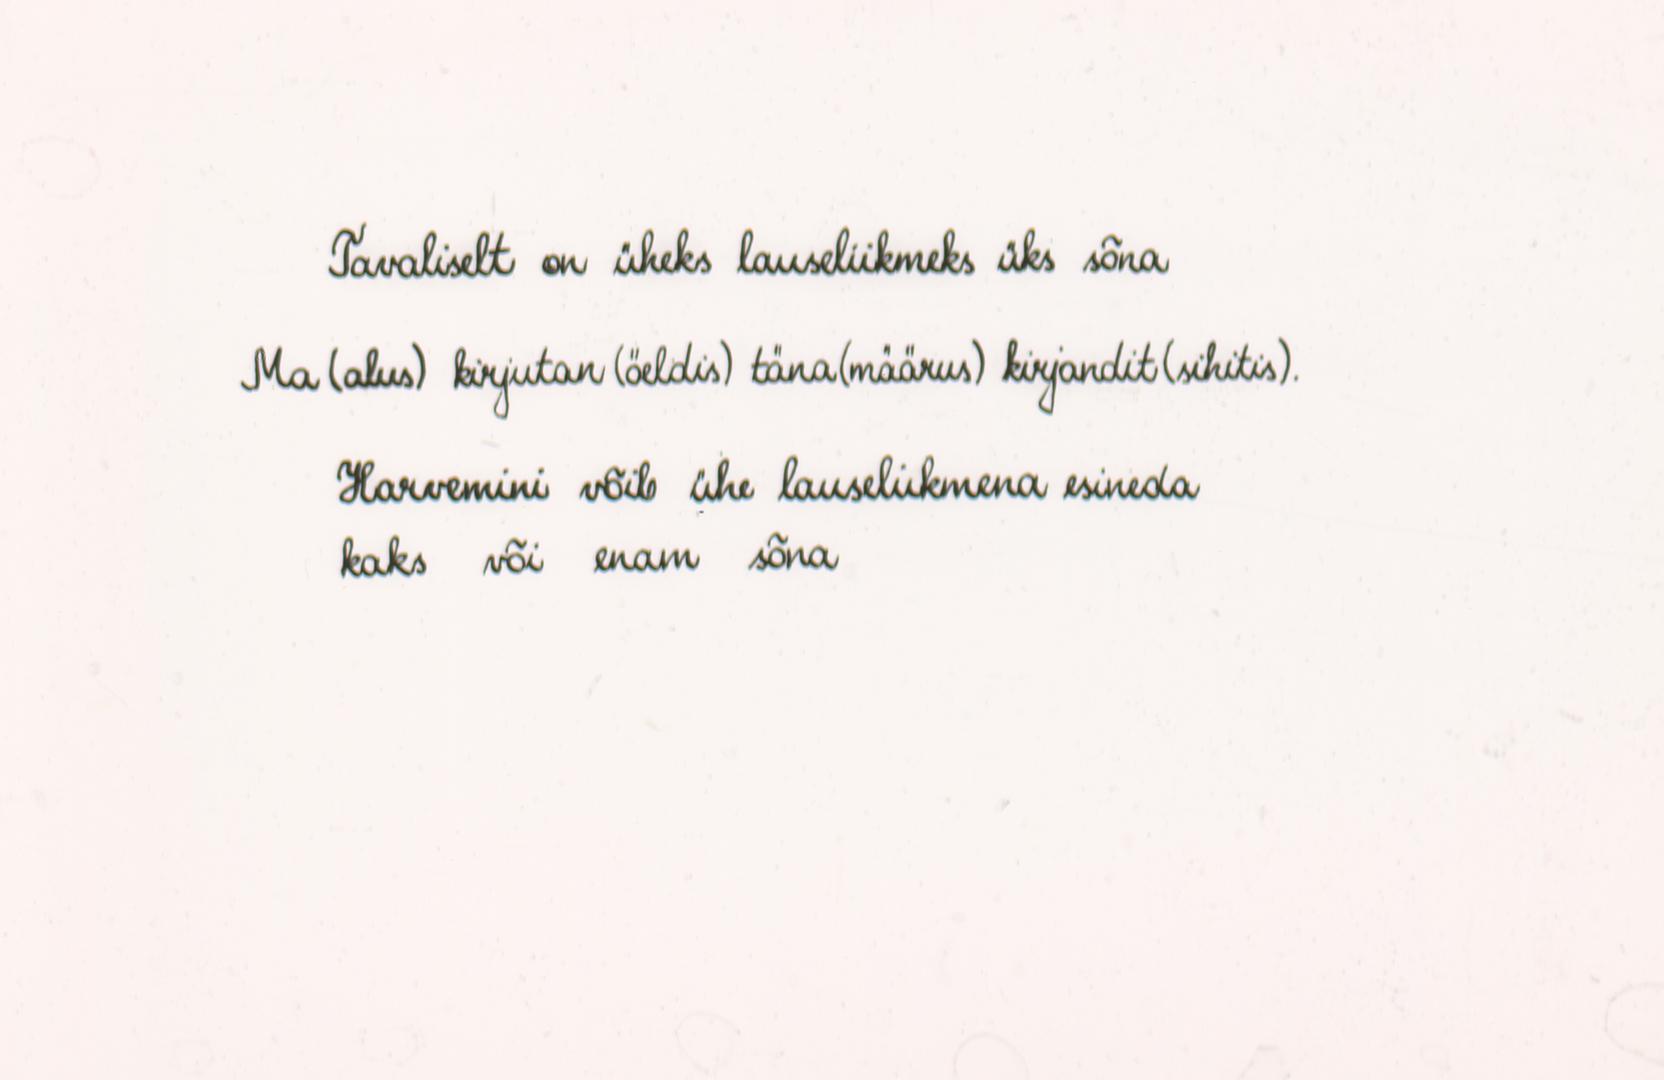 Tavaliselt on üheks lauseliikmeks üks sõna
Ma (alus) kirjutan (öeldis) täna (määrus) kirjandit (sihitis).
Harvemini võib ühe lauseliikmena esineda
kaks või enam sõna